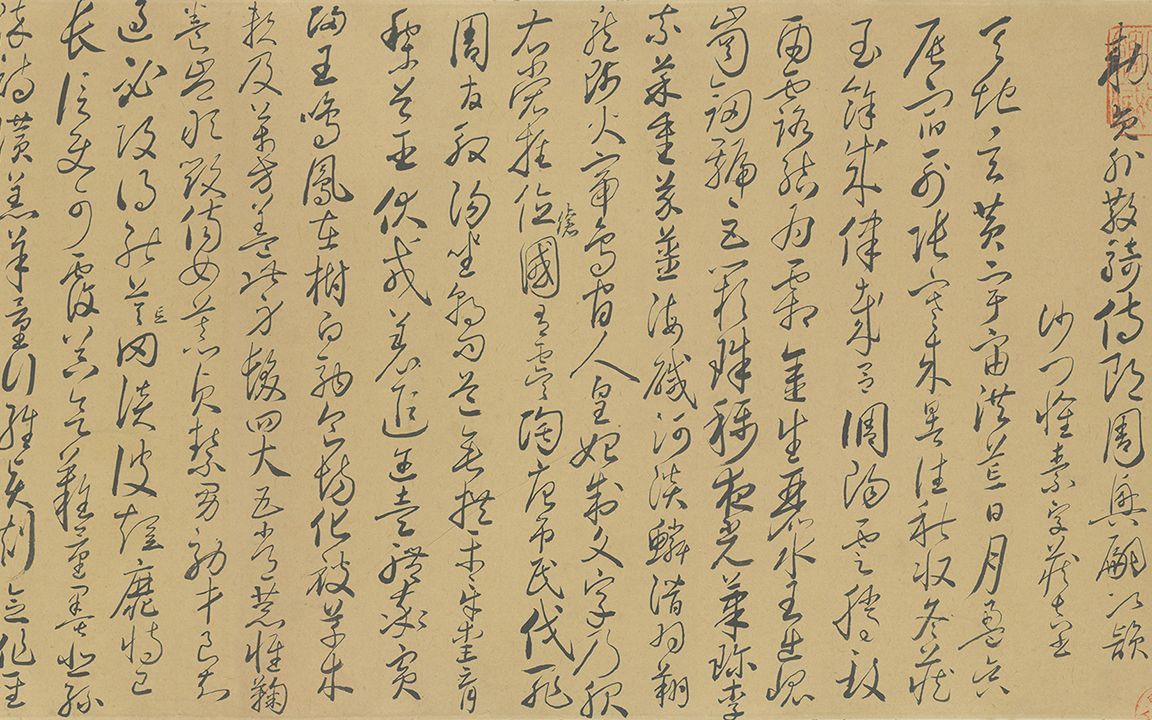 勅員外散騎侍郎周興嗣次韻
沙門懷素字藏真書
天地玄黃宇宙洪荒日月盈昃
辰宿列張寒來暑往秋收冬藏
閏餘成律歲呂調陽雲騰致
雨露結為霜金生麗水玉出崑
崗劍號巨闕珠稱夜光菓珍李
柰菜重芥薑海鹹河淡鱗潛羽翔
龍師火帝鳥官人皇始制文字乃服
衣裳推位讓國有虞陶唐弔民伐罪
周發殷湯坐朝問道垂拱平章愛育
黎首臣伏戎羌遐邇壹體率賓
歸王鳴鳳在樹白駒食場化被草木
賴及萬方蓋此身髮四大五常恭惟鞠
養豈敢毀傷女慕貞絜男效才良知
過必改得能莫忘罔談彼短靡恃己
長信使可覆器欲難量墨悲絲
染詩讚羔羊景行維賢剋念作聖